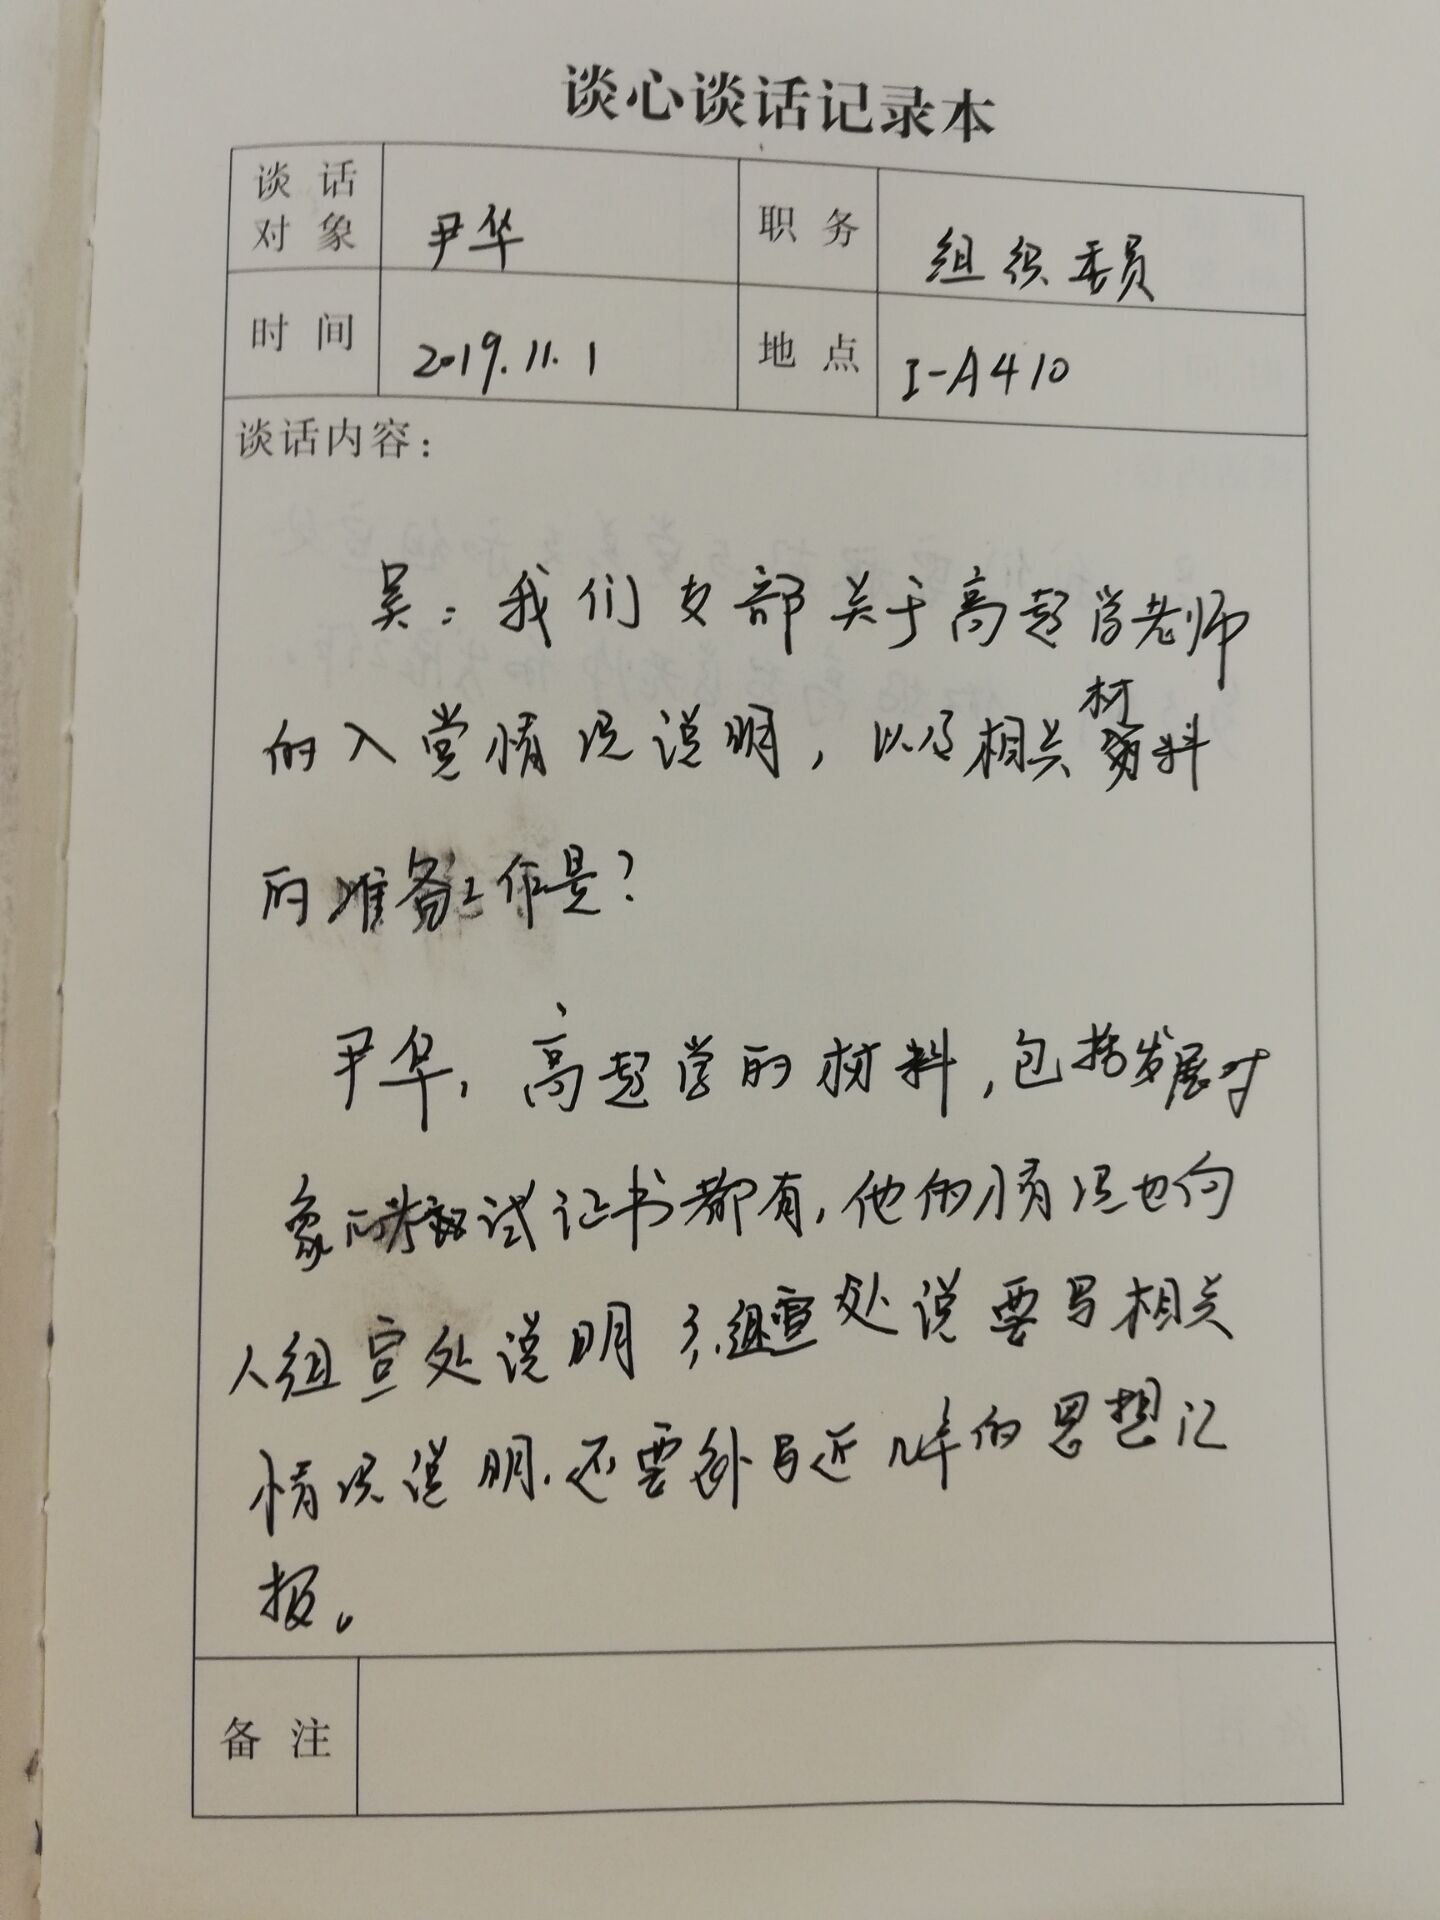 谈心谈话记录本
谈话对象 尹华 职务 组织委员
时间 2019.11.1 地点 I-A410
谈话内容：
吴：我们支部关于高超学老师
的入党情况说明，以及相关材料
的准备工作是？
尹华，高超学的材料，包括发展对
象的考试证书都有，他的情况也向
人组宣处说明了，组宣处说要写相关
情况说明.还要补写近几年的思想汇
报。
备注